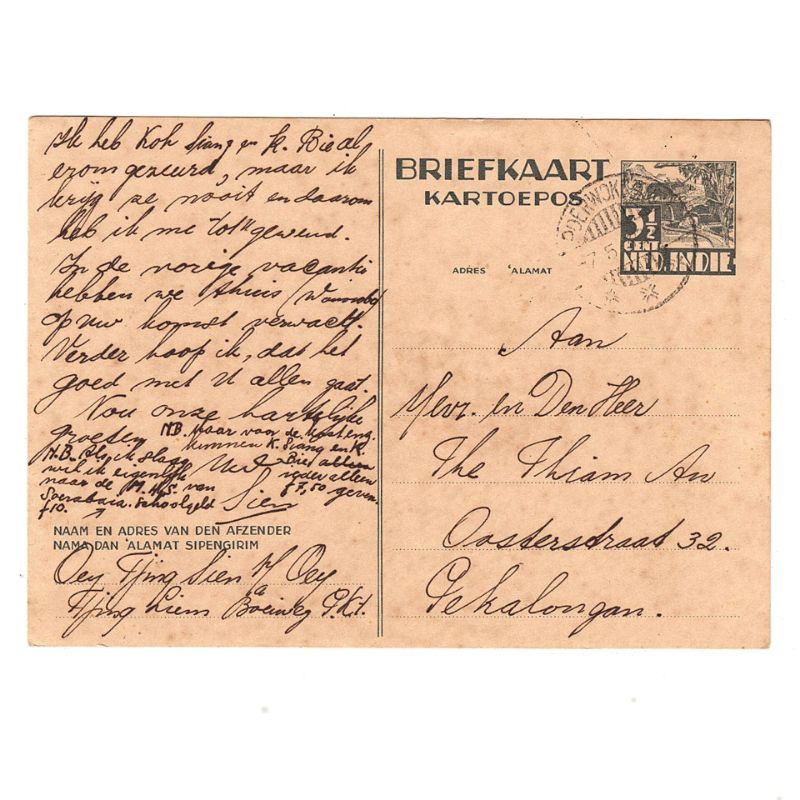 Ik heb Koh Siang en K. Bie al
erom gezeurd, maar ik
krijg ze nooit en daarom
heb ik me tot U gewend.
In de vorige vacantie
hebben we thuis (Wonosobo)
op uw komst verwacht.
Verder hoop ik, dat het
goed met U allen gaat.
Nou onze hartelijke
groeten
N.B. Maar voor de
kunnen K. Siang en K.
Bie alleen
ieder alleen
f 7,50 geven
N.B. Als ik slaag
wil ik eigenlijk
naar de M.H.S. van
Soerabaia. Schoolgeld
f 10.
Sien
NAAM EN ADRES VAN DEN AFZENDER
NAMA DAN 'ALAMAT SIPENGIRIM
Oey Tjing Sien p/a Oey
Tjing Liem Boeiweg P.K.T.
BRIEFKAART
KARTOEPOS
3½
CENT
NED. INDIE
POERWOKERTO
7.5
ADRES 'ALAMAT
Aan
Mevr. en Den Heer
The Thiam An
Oosterstraat 32.
Pekalongan.